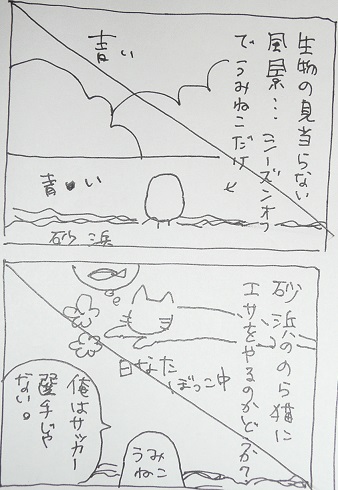 生物の見当らない
風景…シーズンオフ
でうみねこだけ
青い
青い
砂浜
砂浜ののら猫に
エサをやるのかどうか?
日なた
ぼっこ中
俺はサッカー
選手じゃ
ない。
うみ
ねこ